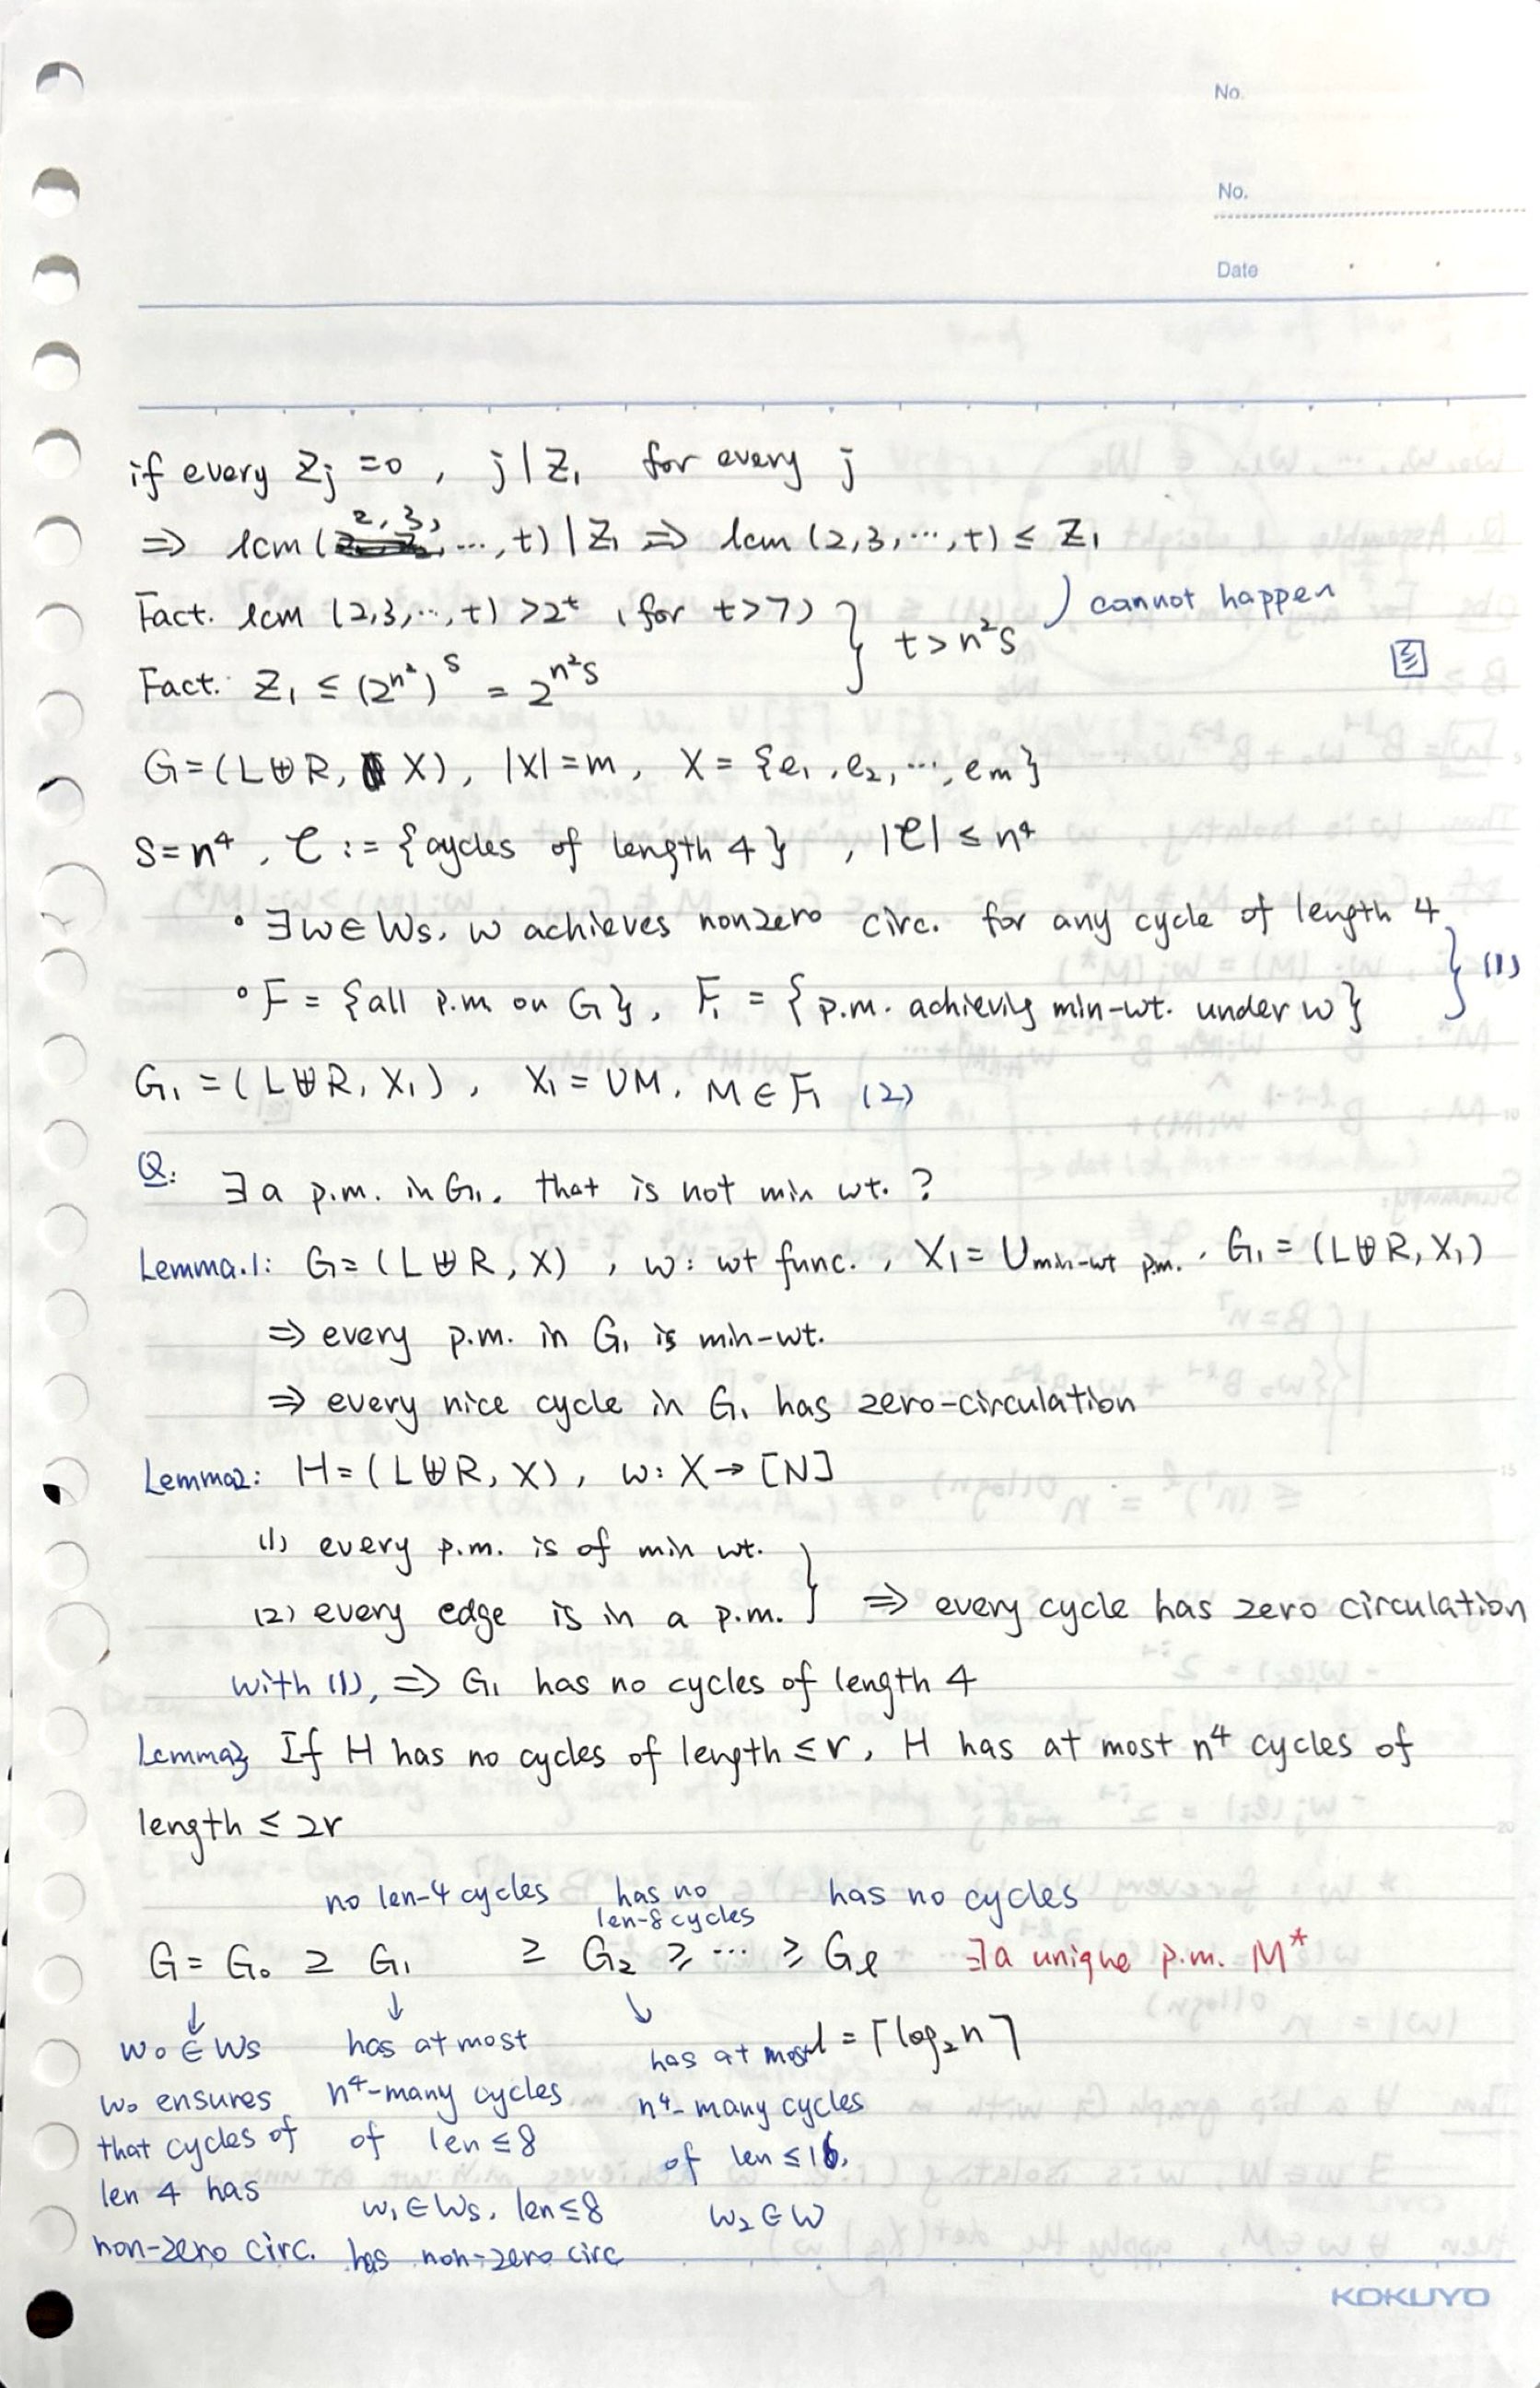 No.
No.
Date
if every Zj = 0 , j | Z1 for every j
⇒ lcm (2, 3, ..., t) | Z1 ⇒ lcm (2,3,...,t) ≤ Z1
Fact. lcm (2,3,..,t) > 2^t (for t>7) } t > n²s ) cannot happen
Fact. Z1 ≤ (2^n²)^s = 2^n²s
G = (L⊎R, X), |X| = m, X = {e1, e2, ..., em}
S = n⁴, C := {cycles of length 4} , |C| ≤ n⁴
• ∃w∈Ws. w achieves nonzero circ. for any cycle of length 4 } (1)
• F = {all p.m on G}, F1 = {p.m. achieving min-wt. under w}
G1 = (L⊎R, X1) , X1 = ∪M, M∈F1 (2)
Q: ∃ a p.m. in G1, that is not min wt. ?
Lemma.1: G = (L⊎R, X) , w: wt func. , X1 = ∪min-wt p.m. , G1 = (L⊎R, X1)
⇒ every p.m. in G1 is min-wt.
⇒ every nice cycle in G1 has zero-circulation
Lemma2: H = (L⊎R, X), w: X → [N]
(1) every p.m. is of min wt.
(2) every edge is in a p.m. } ⇒ every cycle has zero circulation
with (1), ⇒ G1 has no cycles of length 4
Lemma3 If H has no cycles of length ≤ r, H has at most n⁴ cycles of
length ≤ 2r
no len-4 cycles has no len-8 cycles has no cycles
G = G0 ≥ G1 ≥ G2 ≥ ... ≥ Gℓ ∃ a unique p.m. M*
↓ ↓ ↓
w0 ∈ Ws has at most has at most l = ⌈log2 n⌉
w0 ensures n⁴-many cycles n⁴-many cycles
that cycles of of len ≤ 8 of len ≤ 16.
len 4 has w1 ∈ Ws, len ≤ 8 w2 ∈ W
non-zero circ. has non-zero circ
KOKUYO